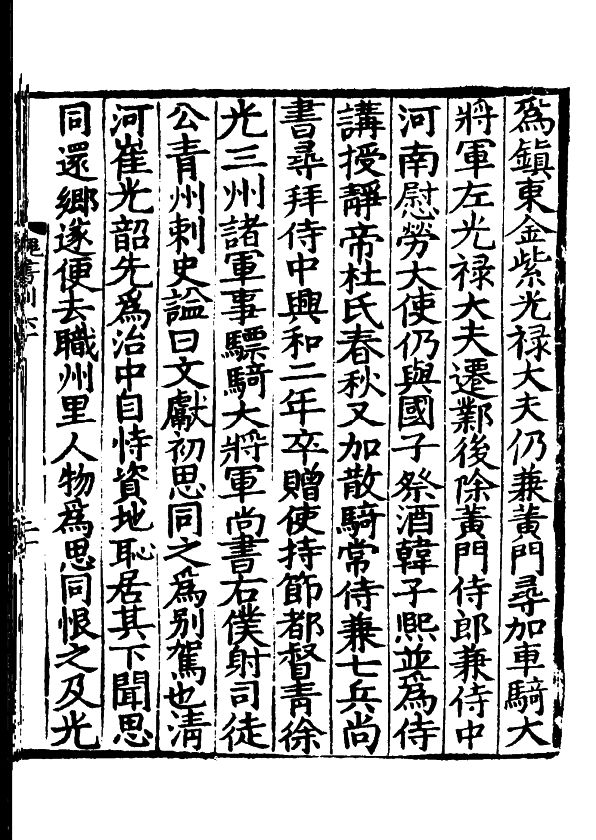 爲鎮東金紫光祿大夫仍兼黃門尋加車騎大
將軍左光祿大夫遷鄴後除黃門侍郎兼侍中
河南慰勞大使仍與國子祭酒韓子熙並爲侍
講授靜帝杜氏春秋又加散騎常侍兼七兵尚
書尋拜侍中興和二年卒贈使持節都督青徐
光三州諸軍事驃騎大將軍尚書右僕射司徒
公青州刺史諡曰文獻初思同之爲別駕也清
河崔光韶先爲治中自恃資地恥居其下聞思
同還鄉遂便去職州里人物爲思同恨之及光